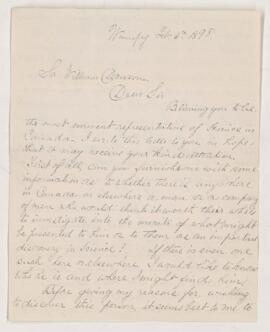 Winnipeg Feb 8th 1898.
Sir William Dawson.
Dear Sir
Believing you to be
the most eminent representative of Science in
Canada. I write this letter to you in hope
that it may receive your kind attention.
First of all, can you furnish me with some
information as to whether there is anywhere
in Canada, or elsewhere a man, or a company
of men who would think it worth their while
to investigate into the merits of what might
be presented to him or to them as an important
discovery in Science? If there is even one
such here or elsewhere I would like to know
who he is and where I might find him.
Before giving my reasons for wishing
to discover this person it seems best to me to